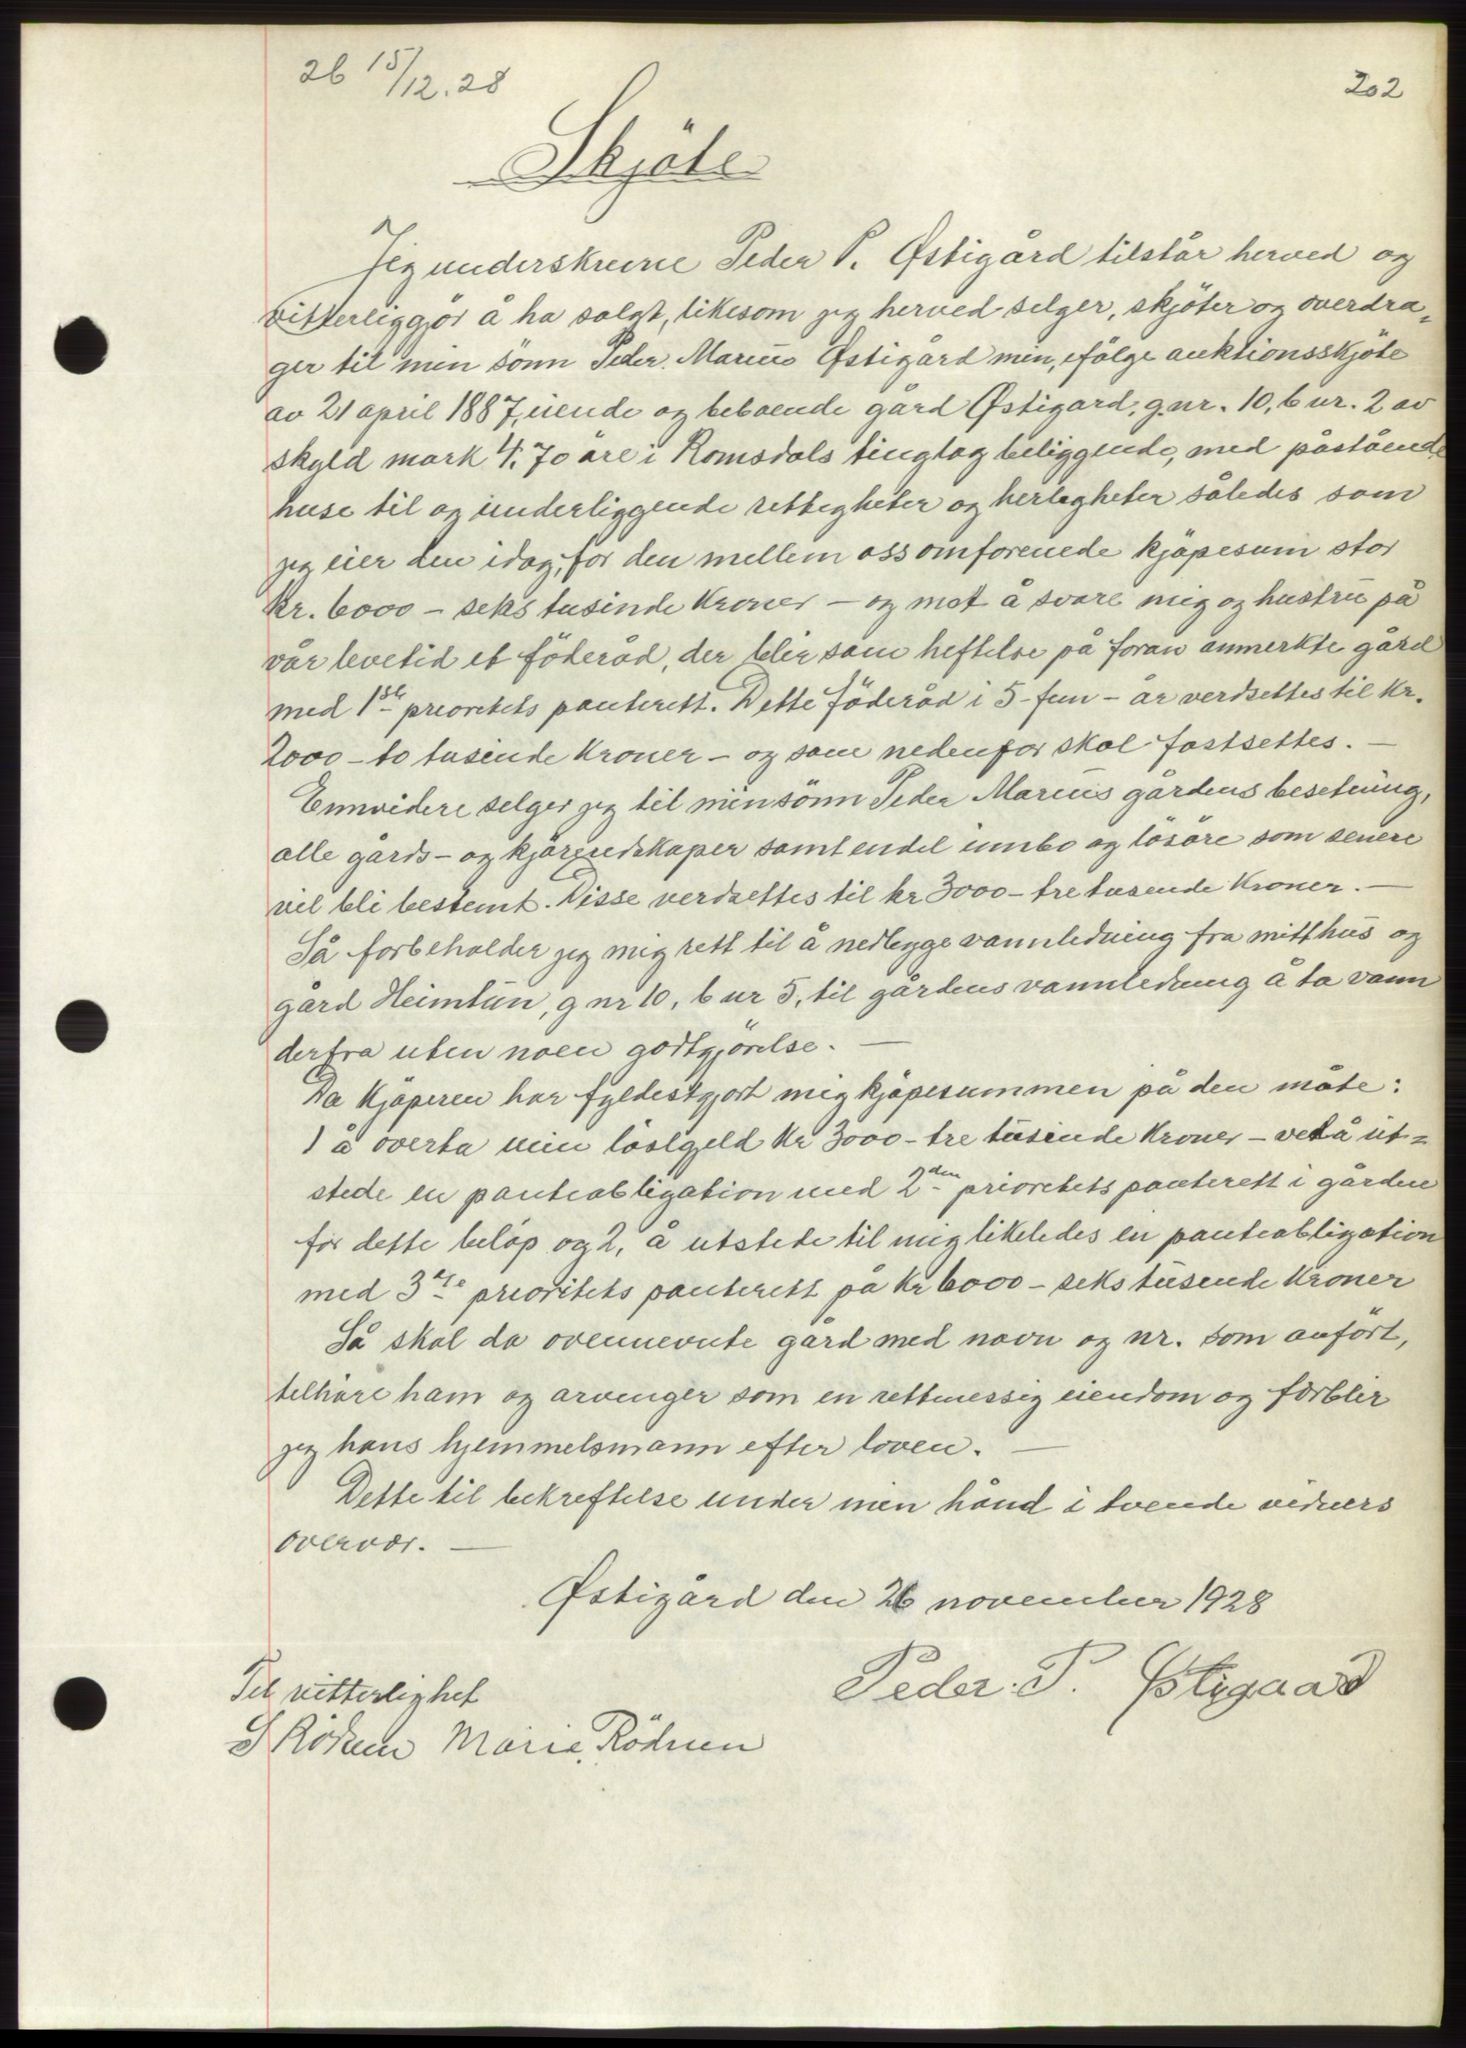 26 15/12.28
202
Skjöte
Jeg underskrevne Peder P. Østigård tilstår herved og
vitterliggjör å ha solgt, likesom jeg herved selger, skjöter og overdra-
ger til min sönn Peder Marius Østigård min, efölge auktionsskjöte
av 21 april 1887, eiende og beboende gård Østigard, g.nr. 10, b nr. 2 av
skyld mark 4.70 öre i Romsdals tinglag beliggende, med påstående
huse til og underliggende rettigheter og herlegheter således som
jeg eier den idag, for den mellem oss omforenede kjöpesum stor
kr. 6000 - seks tusinde kroner - og mot å svare mig og hustru på
vår levetid et föderåd, der blir som heftelse på foran anmerkte gård
med 1ste prioritets panterett. Dette föderåd i 5-fem - år verdsettes til kr.
2000 - to tusinde kroner - og som nedenfor skal fastsettes. -
Ennvidere selger jeg til min sönn Peder Marius gårdens besetning,
alle gårds- og kjöreredskaper samt endel innbo og lösöre som senere
vil bli bestemt. Disse verdsettes til kr 3000 - tre tusende kroner. -
Så forbeholder jeg mig rett til å nedlegge vannledning fra mitt hus og
gård Heimtun, g nr 10, b nr 5, til gårdens vannledning å ta vann
derfra uten noen godtgjörelse. -
Da kjöperen har fyldestgjort mig kjöpesummen på den måte:
1 å overta min löslgjeld kr 3000 - tre tusinde kroner - ved å ut=
stede en panteobligation med 2den prioritets panterett i gården
for dette belöp og 2, å utstede til mig likeledes en panteobligation
med 3dje prioritets panterett på kr 6000 - seks tusende kroner
Så skal da ovennevnte gård med navn og nr. som anfört,
tilhöre ham og arvinger som en rettmessig eiendom og forblir
jeg hans hjemmelsmann efter loven. -
Dette til bekreftelse under min hånd i tvende vidners
overvær. -
Østigård den 26 november 1928
Peder. P. Østigaard
Til vitterlighet
S Rödven Marie Rödven